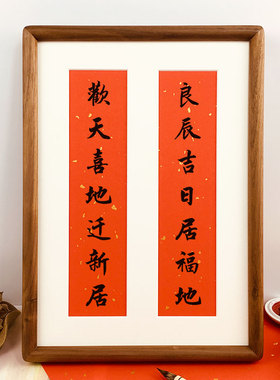 良辰吉日居福地
歡天喜地迁新居